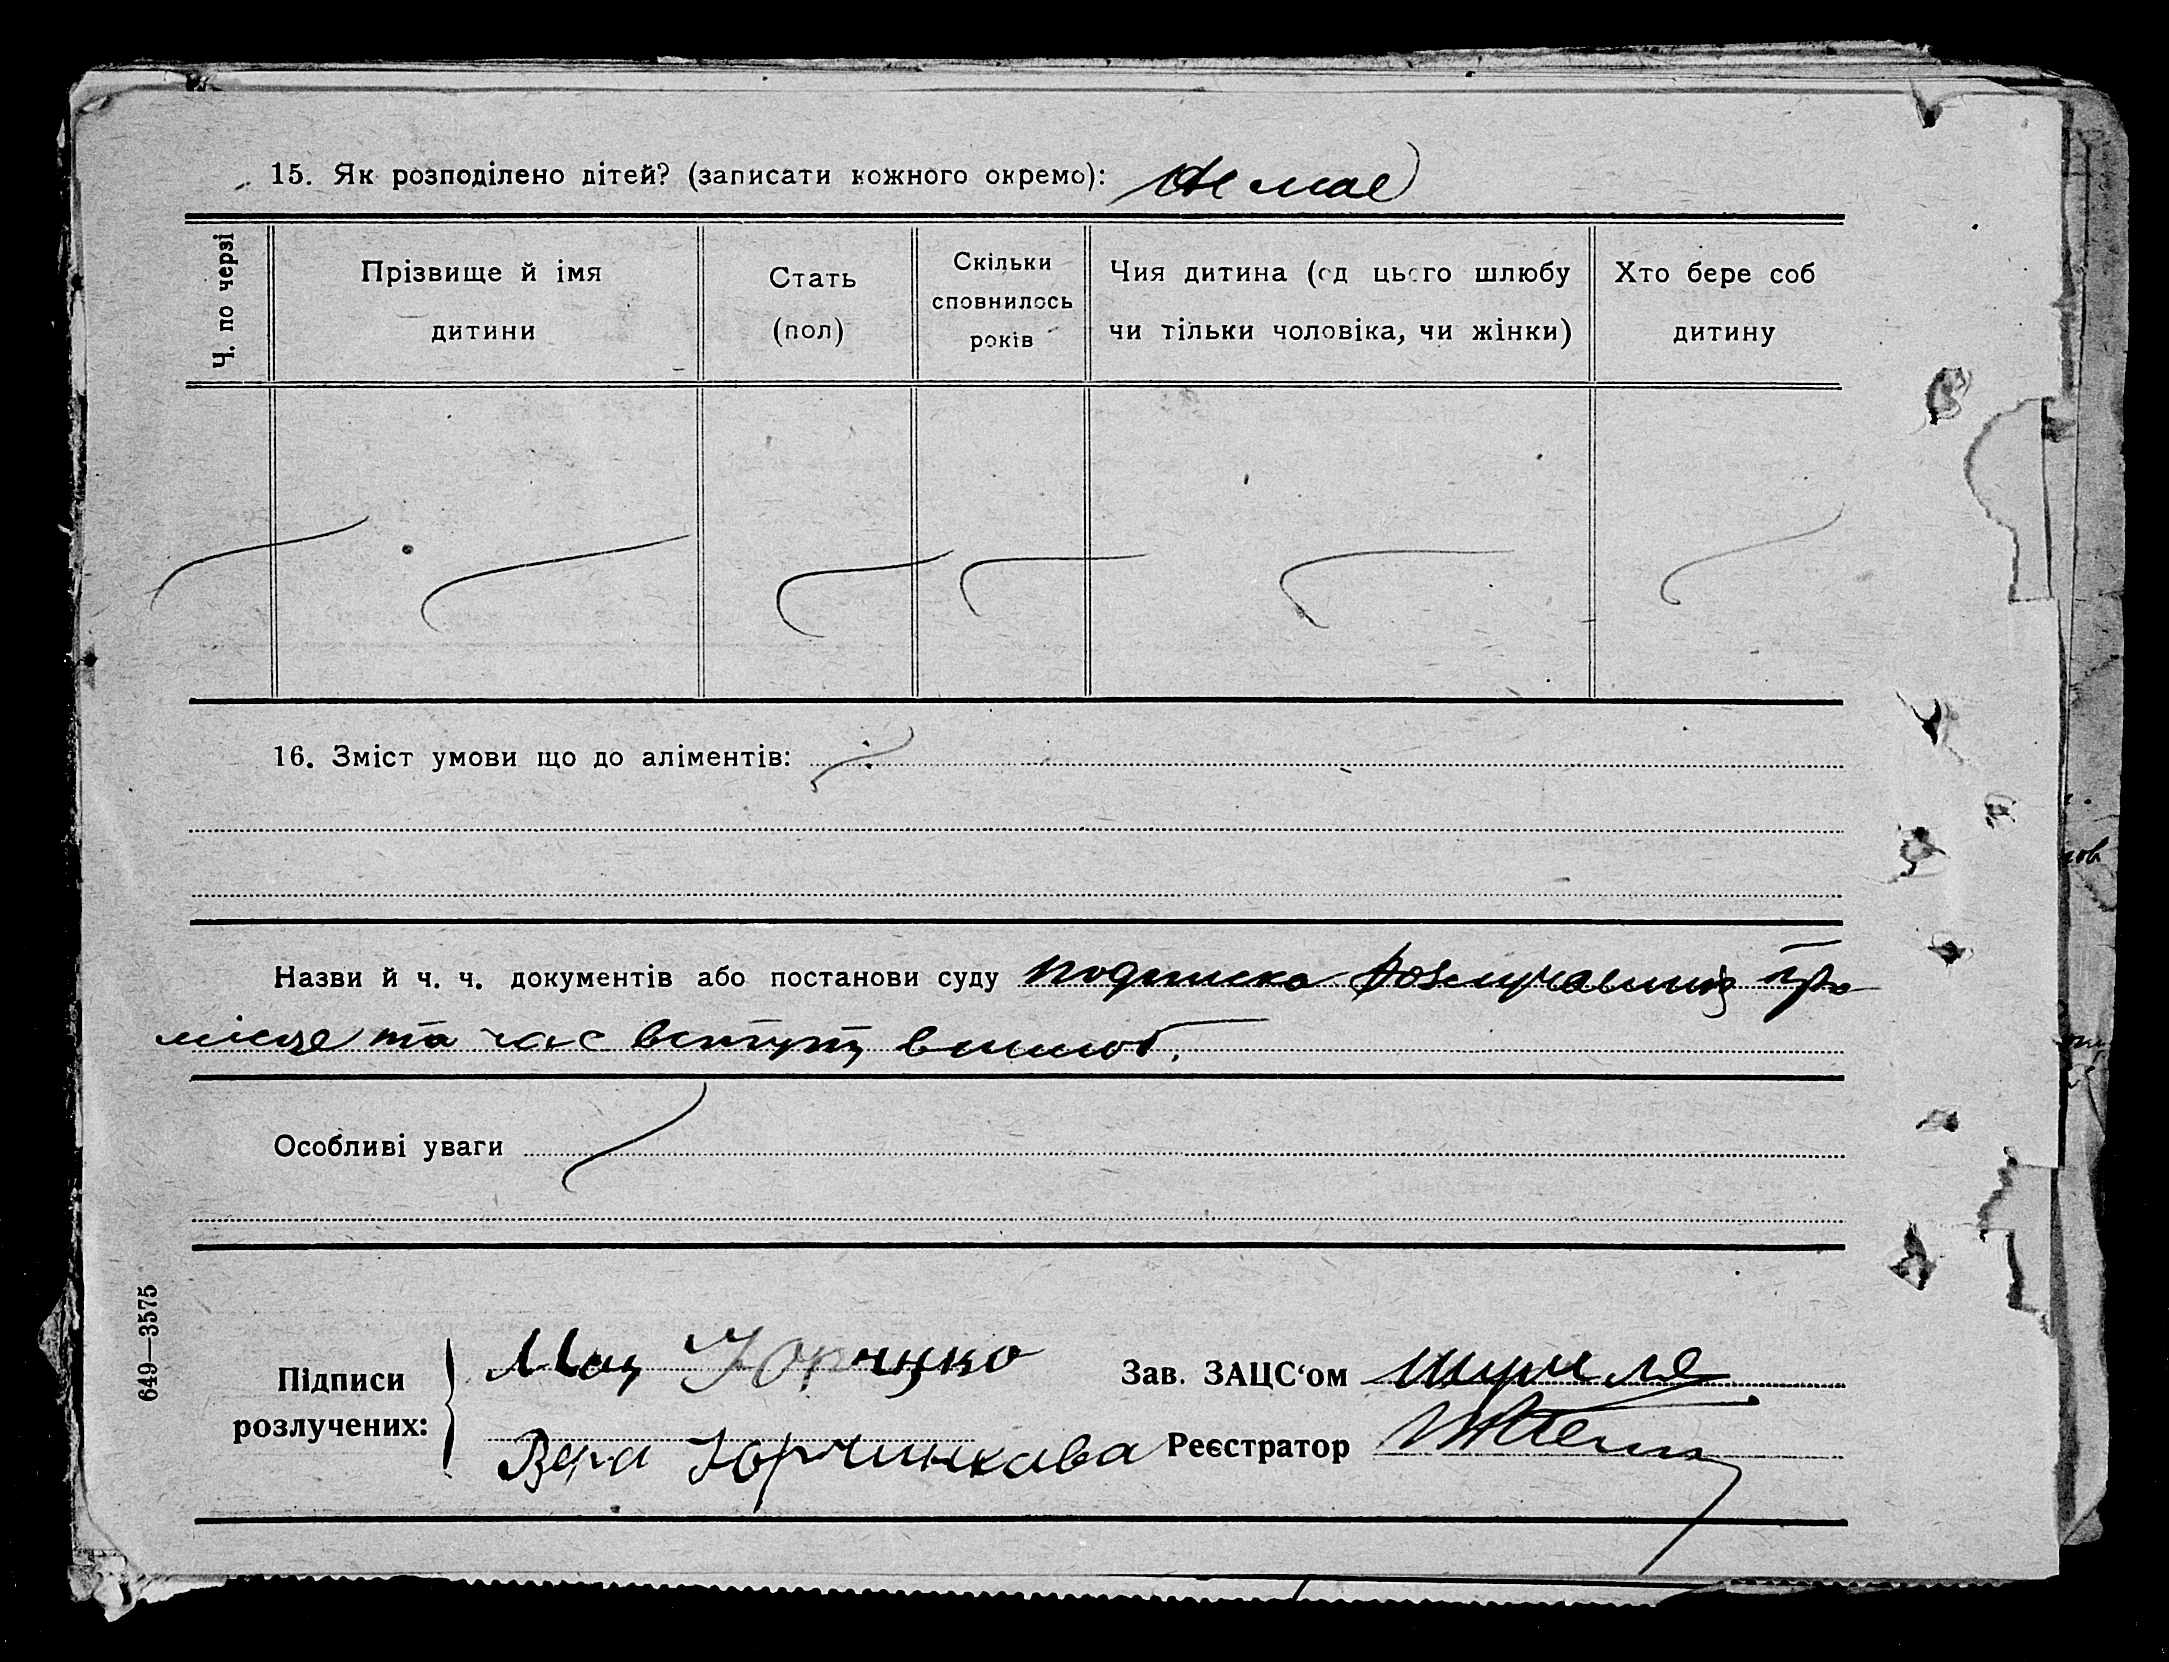 15. Як розподілено дітей? (записати кожного окремо): Немає
Ч. по черзі
Прізвище й імя
дитини
Стать
(пол)
Скільки
сповнилось
років
Чия дитина (од цього шлюбу
чи тільки чоловіка, чи жінки)
Хто бере соб
дитину
16. Зміст умови що до аліментів:
Назви й ч. ч. документів або постанови суду подписка розлучавших про
місце та час вступу в шлюб.
Особливі уваги
649—3575
Підписи
розлучених:
Зав. ЗАЦС‘ом
Вера Юрчинкова Реєстратор